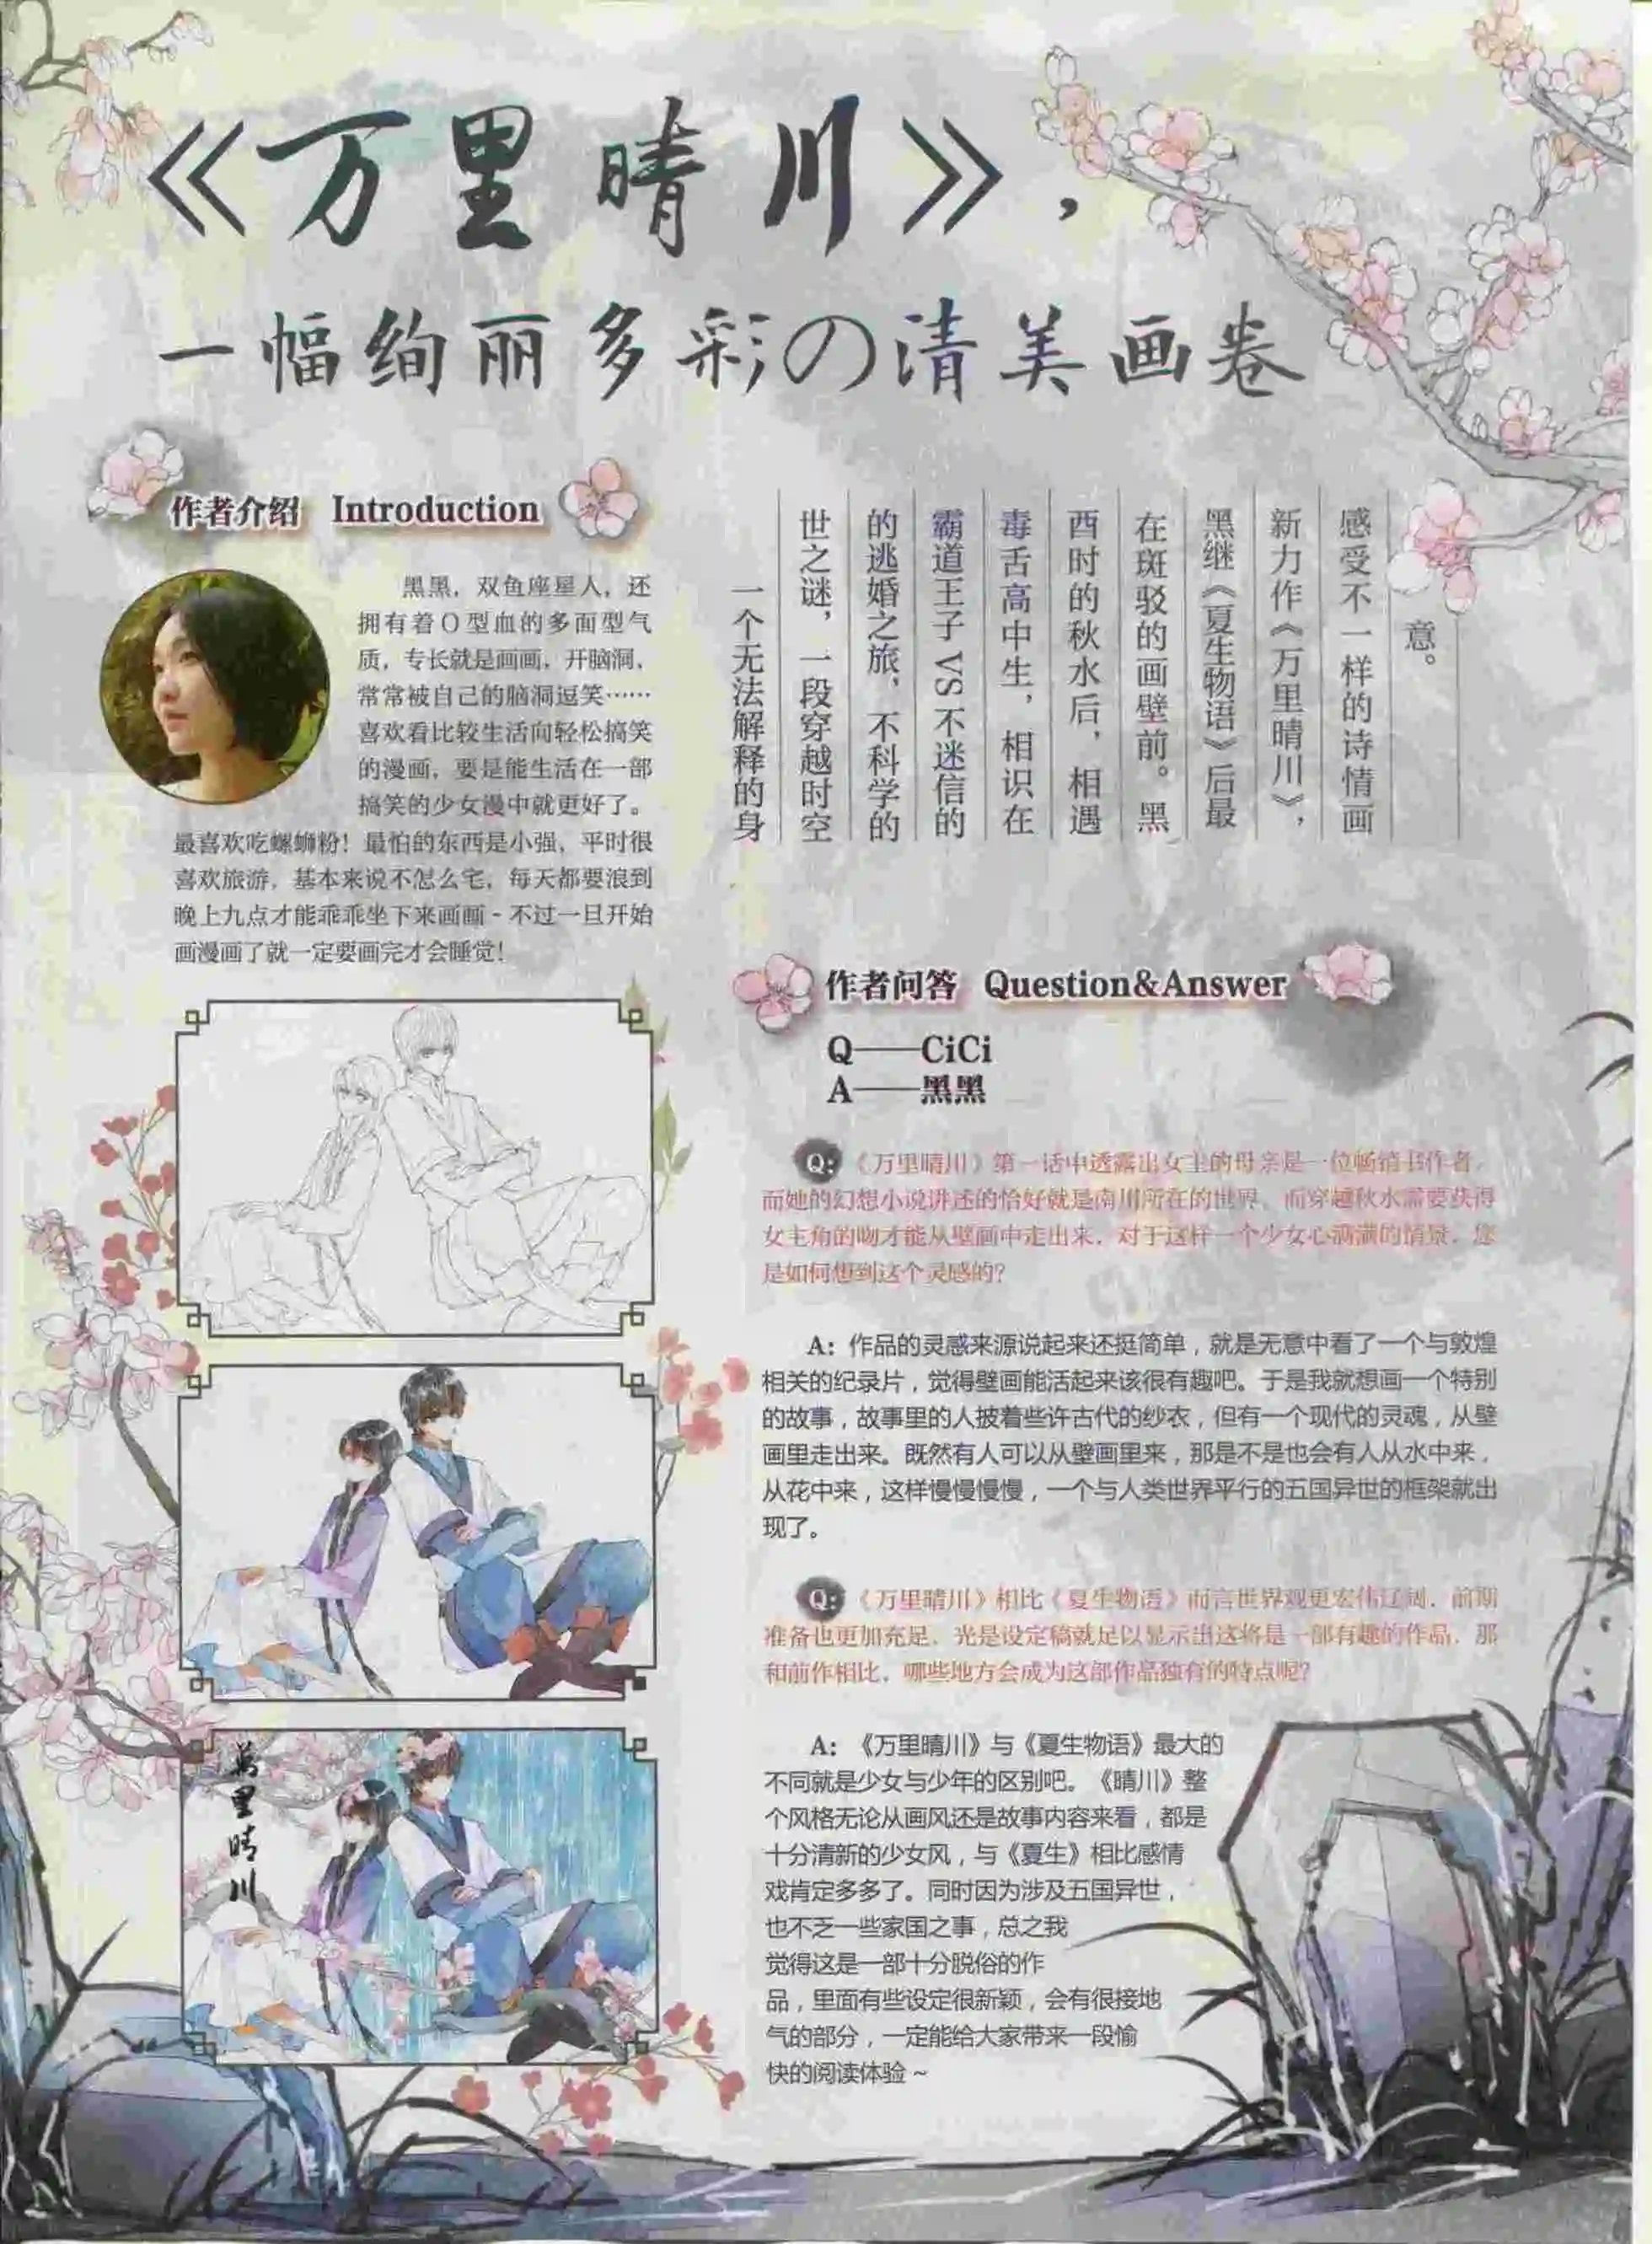 《万里晴川》，
一幅绚丽多彩の清美画卷
作者介绍 Introduction
黑黑，双鱼座星人，还
拥有着O型血的多面型气
质，专长就是画画，开脑洞，
常常被自己的脑洞逗笑……
喜欢看比较生活向轻松搞笑
的漫画，要是能生活在一部
搞笑的少女漫中就更好了。
最喜欢吃螺蛳粉！最怕的东西是小强，平时很
喜欢旅游，基本来说不怎么宅，每天都要浪到
晚上九点才能乖乖坐下来画画－不过一旦开始
画漫画了就一定要画完才会睡觉！
一个无法解释的身
世之谜，一段穿越时空
的逃婚之旅，不科学的
霸道王子VS不迷信的
毒舌高中生，相识在
酉时的秋水后，相遇
在斑驳的画壁前。黑
黑继《夏生物语》后最
新力作《万里晴川》，
感受不一样的诗情画
意。
萬里晴川
作者问答 Question&Answer
Q——CiCi
A——黑黑
Q：《万里晴川》第一话中透露出女主的母亲是一位畅销书作者，
而她的幻想小说讲述的恰好就是南川所在的世界，而穿越秋水需要获得
女主角的吻才能从壁画中走出来，对于这样一个少女心满满的情景，您
是如何想到这个灵感的？
A：作品的灵感来源说起来还挺简单，就是无意中看了一个与敦煌
相关的纪录片，觉得壁画能活起来该很有趣吧。于是我就想画一个特别
的故事，故事里的人披着些许古代的纱衣，但有一个现代的灵魂，从壁
画里走出来。既然有人可以从壁画里来，那是不是也会有人从水中来，
从花中来，这样慢慢慢慢，一个与人类世界平行的五国异世的框架就出
现了。
Q：《万里晴川》相比《夏生物语》而言世界观更宏伟辽阔，前期
准备也更加充足，光是设定稿就足以显示出这将是一部有趣的作品，那
和前作相比，哪些地方会成为这部作品独有的特点呢？
A：《万里晴川》与《夏生物语》最大的
不同就是少女与少年的区别吧。《晴川》整
个风格无论从画风还是故事内容来看，都是
十分清新的少女风，与《夏生》相比感情
戏肯定多多了。同时因为涉及五国异世，
也不乏一些家国之事，总之我
觉得这是一部十分脱俗的作
品，里面有些设定很新颖，会有很接地
气的部分，一定能给大家带来一段愉
快的阅读体验～